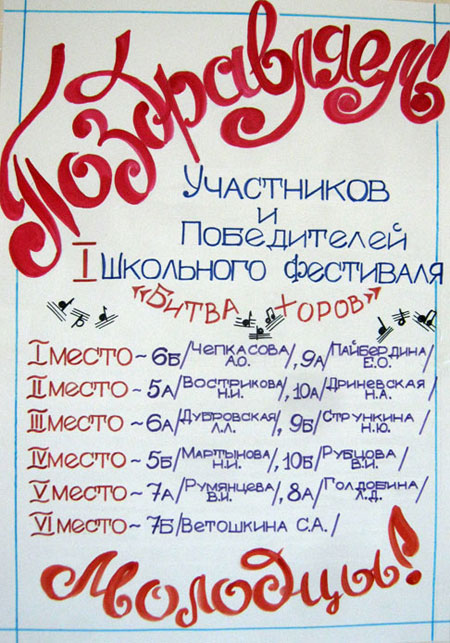 Поздравляем!
Участников
и
Победителей
I школьного фестиваля
"Битва хоров"
I место ~ 6Б/Чепкасова А.О./, 9А/Пайбердина Е.О./
II место ~ 5А/Вострикова Н.И./, 10А/Дриневская Н.А./
III место ~ 6А/Дубровская Л.Л./, 9Б/Стрункина Н.Ю./
IV место ~ 5Б/Мартынова Н.И./, 10Б/Рубцова В.И./
V место ~ 7А/Румянцева В.И./, 8А/Голдобина Л.Д./
VI место ~ 7Б/Ветошкина С.А./
Молодцы!